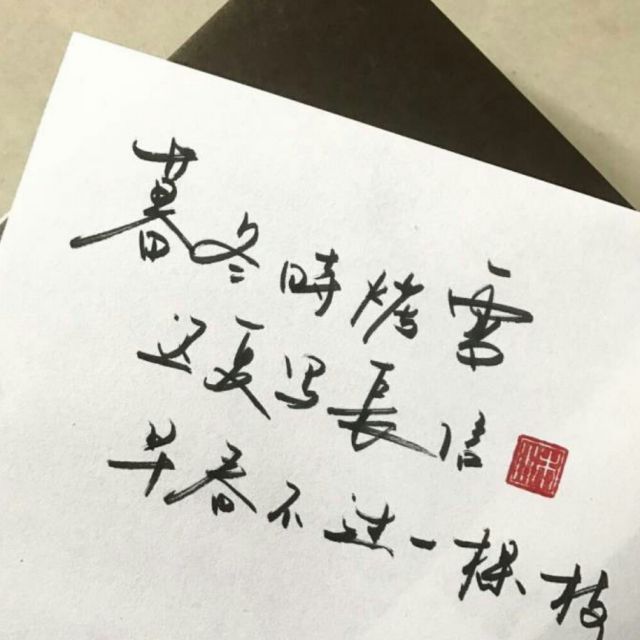 暮冬時烤雪
迟夏写長信
早春不过一棵树